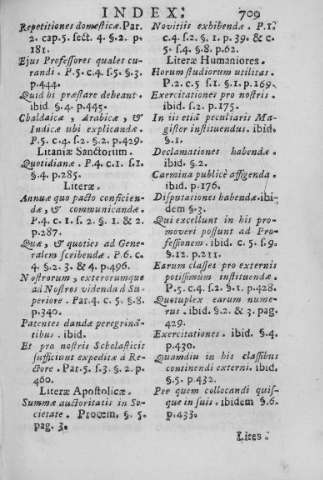 INDEX. 709
Repetitiones domesticæ. Par.
2. cap. 5. sect. 4. §. 2. p.
181.
Ejus Professores quales cu-
randi. P. 5. c. 4. s. 5. §. 3.
p. 444.
Quid bi præstare debeant.
ibid. §. 4. p. 445.
Chaldaica, Arabica, &
Indica ubi explicandæ.
P. 5. c. 4. s. 2. §. 2. p. 429.
Litaniæ Sanctorum.
Quotidianæ. P. 4. c. 1. s. 1.
§. 4. p. 285.
Literæ.
Annuæ quo pacto conficien-
dæ, & communicandæ.
P. 4. c. 1. s. 2. §. 1. & 2.
p. 287.
Quæ, & quoties ad Gene-
ralem scribendæ. P. 6. c.
4. §. 2. 3. & 4. p. 496.
Nostrorum, exterorumque
ad Nostres videndæ à Su-
periore. Par. 4. c. 5. §. 8.
p. 340.
Patentes dandæ peregrinã-
tibus. ibid.
Et pro nostris Scholasticis
sufficiunt expeditæ à Re-
ctore. Par. 5. s. 3. §. 2. p.
460.
Literæ Apostolicæ.
Summæ auctoritatis in So-
cietate. Proœm. §. 5.
pag. 3.
Novitiis exhibendæ. P. 1.
c. 4. s. 2. §. 1. p. 39. & c.
5. s. 4. §. 8. p. 62.
Literæ Humaniores.
Horum studiorum utilitas.
P. 2. c. 5 s. 1. §. 1. p. 169.
Exercitationes pro nostris.
ibid. s. 2. p. 175.
In iis etiã peculiaris Ma-
gister instituendus. ibid.
§. 1.
Declamationes habendæ.
ibid. §. 2.
Carmina publicè affigenda.
ibid. p. 176.
Disputationes habendæ. ibi-
dem §. 3.
Qui excellunt in his pro-
moveri possunt ad Pro-
fessionem. ibid. c. 5. s. 9.
§. 12. p. 211.
Earum classes pro externis
potissimùm instituendæ.
P. 5. c. 4. s. 2. §. 1. p. 428.
Quotuplex earum nume-
rus. ibid. §. 2. & 3. pag.
429.
Exercitationes. ibid. §. 4.
p. 430.
Quamdiu in his classibus
continendi externi. ibid.
§. 5. p. 432.
Per quem collocandi quis-
que in suis. ibidem §. 6.
p. 433.
Lites.